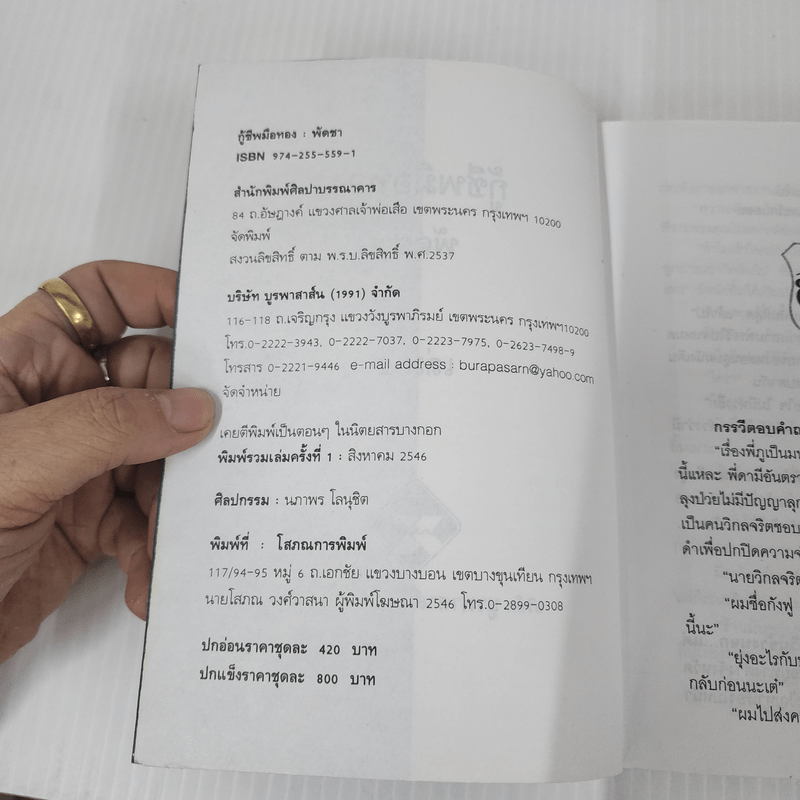 กู้ชีพมือทอง : พัดชา
ISBN 974-255-559-1
สำนักพิมพ์ศิลปาบรรณาคาร
84 ถ.อัษฎางค์ แขวงศาลเจ้าพ่อเสือ เขตพระนคร กรุงเทพฯ 10200
จัดพิมพ์
สงวนลิขสิทธิ์ ตาม พ.ร.บ.ลิขสิทธิ์ พ.ศ.2537
บริษัท บูรพาสาส์น (1991) จำกัด
116-118 ถ.เจริญกรุง แขวงวังบูรพาภิรมย์ เขตพระนคร กรุงเทพฯ10200
โทร.0-2222-3943, 0-2222-7037, 0-2223-7975, 0-2623-7498-9
โทรสาร 0-2221-9446 e-mail address : burapasarn@yahoo.com
จัดจำหน่าย
เคยตีพิมพ์เป็นตอนๆ ในนิตยสารบางกอก
พิมพ์รวมเล่มครั้งที่ 1 : สิงหาคม 2546
ศิลปกรรม : นภาพร โลนุชิต
พิมพ์ที่ : โสภณการพิมพ์
117/94-95 หมู่ 6 ถ.เอกชัย แขวงบางบอน เขตบางขุนเทียน กรุงเทพฯ
นายโสภณ วงศ์วาสนา ผู้พิมพ์โฆษณา 2546 โทร.0-2899-0308
ปกอ่อนราคาชุดละ 420 บาท
ปกแข็งราคาชุดละ 800 บาท
กรรวีตอบคำถ
“เรื่องพี่ภูเป็นม
นี้แหละ พี่ดามีอันตรา
ลุงป่วยไม่มีปัญญาลุก
เป็นคนวิกลจริตชอบ
ดำเพื่อปกปิดความจ
“นายวิกลจริต
“ผมชื่อกังฟู
นี้นะ”
“ยุ่งอะไรกับ
กลับก่อนนะเต๋”
“ผมไปส่งค